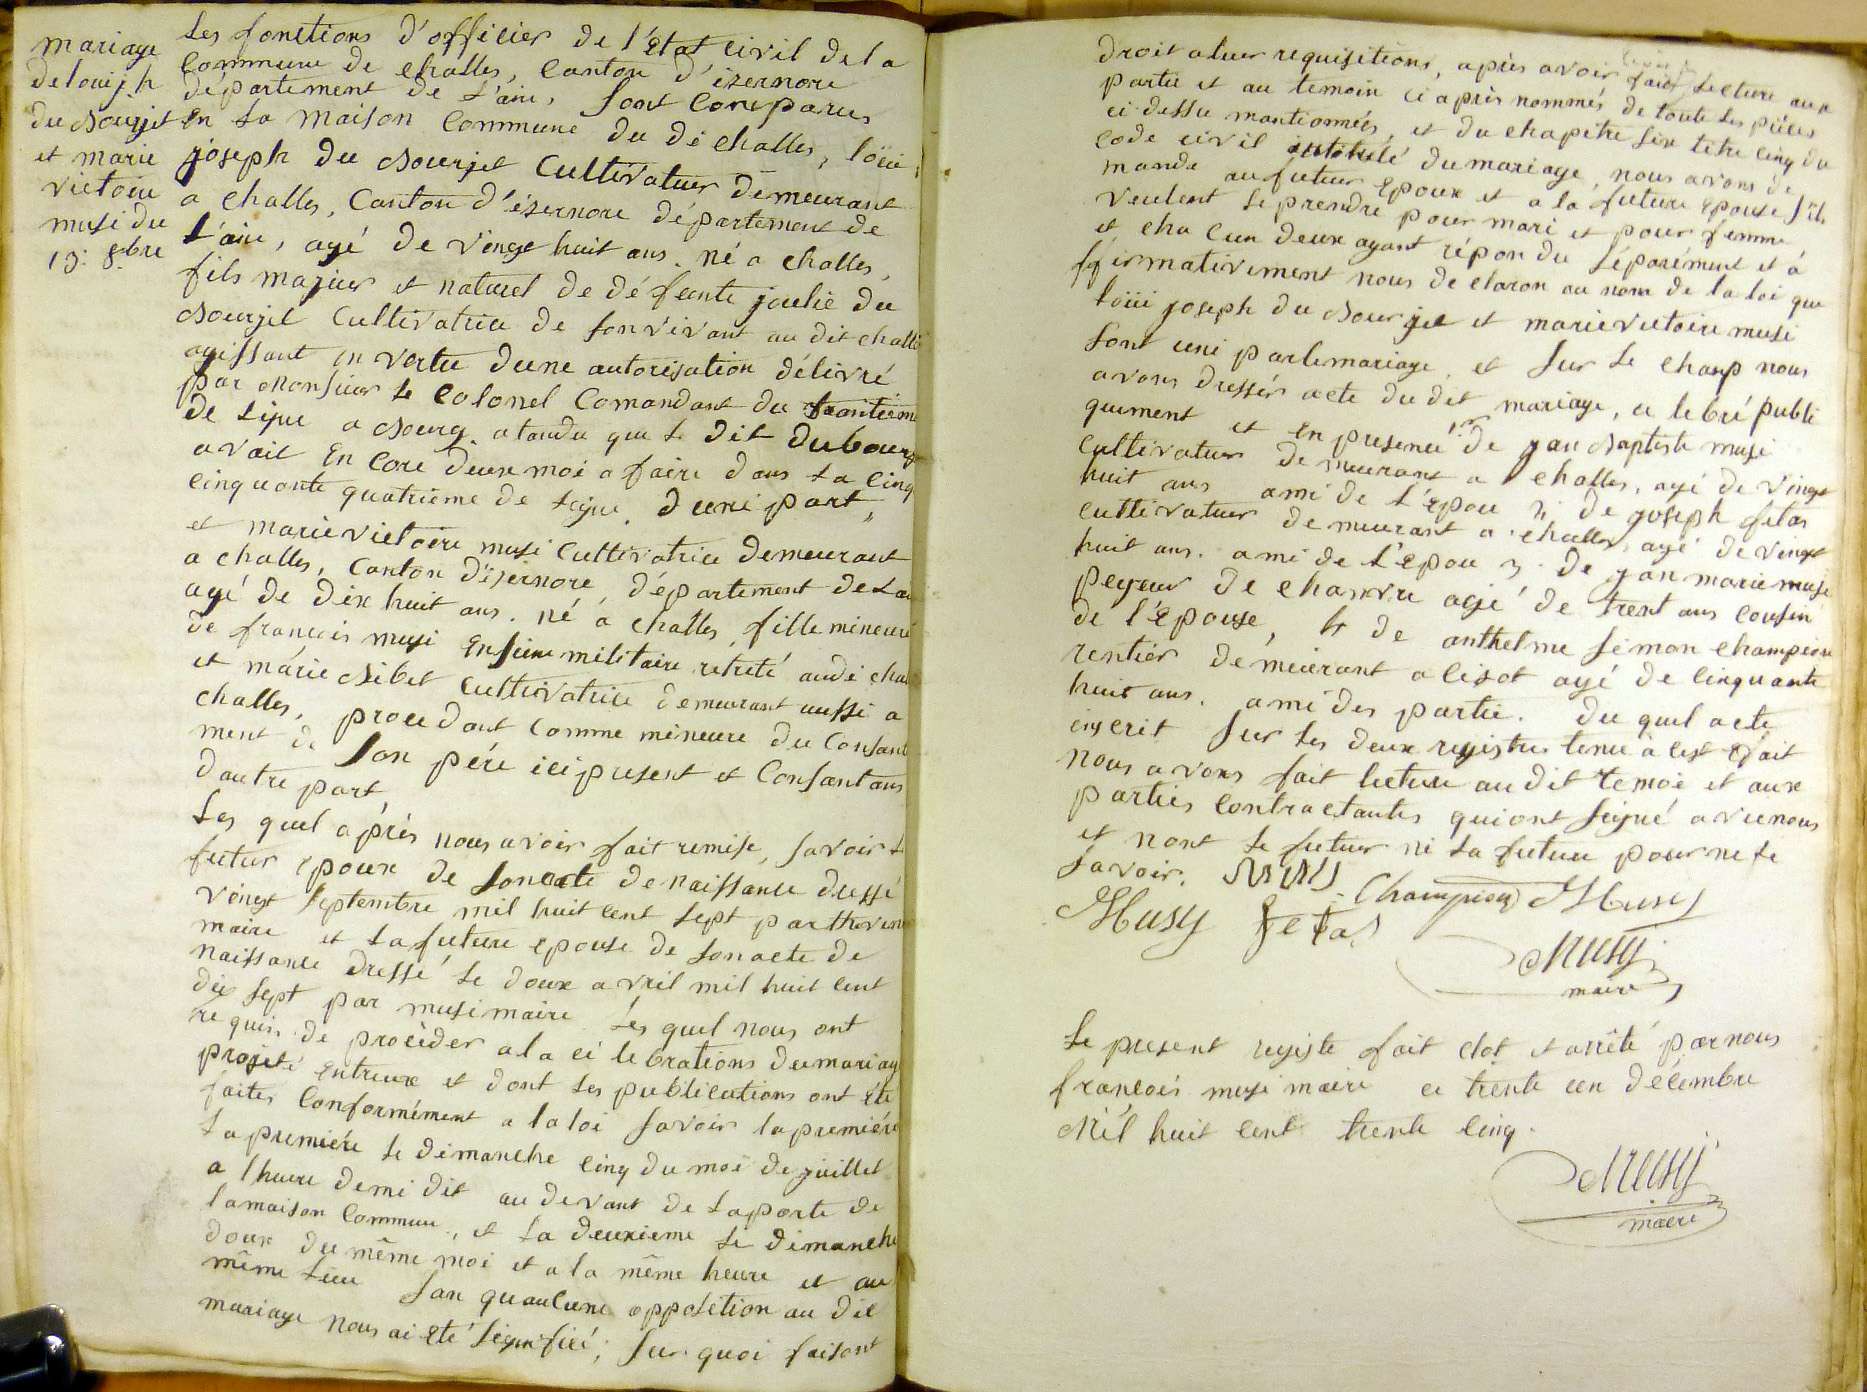 mariage
de louij. h
du Bourjet
et marie
victoire
musi du
19: 8.bre
Les fonctions d'officier de l'état civil de la
commune de challes, canton d'izernore
département de L'ain, sont comparus
en La maison commune du di challes, loüi
joseph du Bourjet Cultivateur demeurant
a challes, Canton d'izernore département de
L'ain, agé de vingt huit ans. né a challes,
fils majeur et naturel de défeunte julie du
Bourjet Cultivatrice de son vivant au dit challe
agissant en vertu d'une autorisation délivré
par Monsieur Le Colonel Comandant du
de Ligne a Bourg. atandu que Le dit dubourg
avait En Core deux moi a faire dans La cinq
cinquante quatrième de Ligne. d'une part,
et marie victoire musi Cultivatrice demeurant
a challes, Canton d'izernore, département de Lai
agé de dix huit ans. né a challes, fille mineure
de francois musi Ensiens militaire rétreté audi cha
et marie Nibet Cultivatrice demeurant aussi a
challes, procedant comme mineure du consant
ment de son pére ici present et Consantans
dautre part
Les quel après nous avoir fait remise, savoir L
futur epoux de son acte de naissance dressé
vingt septembre mil huit cent sept par thevin
maire et La future epouse de son acte de
naissance dressé Le doux avril mil huit cent
dix sept par musi maire. Les quel nous ont
requis de procéder a la cé lebrations du mariag
projeté entreux et dont Les publications ont été
faites Conformément a la loi savoir la premiére
La premiére Le dimanche cinq du moi de juillet
a lheure demi dit au devant de Laporte de
lamaison commun, et La deuxieme Le dimanche
doux du même moi et a la même heure et au
même Lieu san quaucune opposition au dit
mariage nous ai été Signifiée; sur quoi faisant
droit a leur requisitions, apres avoir fait Lecture aux
partie et au temoin ci après nommés de toute Les piéces
ci dessu mantionnées, et du chapitre six titre cinq du
code civil intitulé du mariage, nous avons de
mande au futur epoux et a la future epouse s'ils
veulent se prendre pour mari et pour femme
et cha cun deux ayant répondu séparément et a
ffirmativement nous declaron au nom de la loi que
loüi joseph du Bourjet et marie victoire musi
sont uni par le mariage. et sur Le champ nous
avons dressés acte du dit mariage, ce lebré publi
quement et en presence 1.er de jan Baptiste musi
cultivateur demeurant a challes, agé de vingt
huit ans ami de L'épou 2: de joseph fetas
cultivateur demeurant a challes, agé de vingt
huit ans. ami de L'épou 3. de jan marie musi
peyeur de chanvre agé de trent ans cousin
de l'épouse, 4 de anthelme simon champion
rentier demeurant a lizot agé de cinquante
huit ans. ami des partie. du quel acte
inscrit sur Les deux registres tenu a cest éfait
nous avons fait lecture au dit temoi et aux
parties contractantes qui ont signé avec nous
et nont Le futur ni La future pour ne Le
savoir.
Champion Musy
Musy fetas
Musy
maire
Le present registe fait clot et arrêté par nous
francois musi maire ce trente un décembre
Mil huit cent trente cinq.
Musy
maire